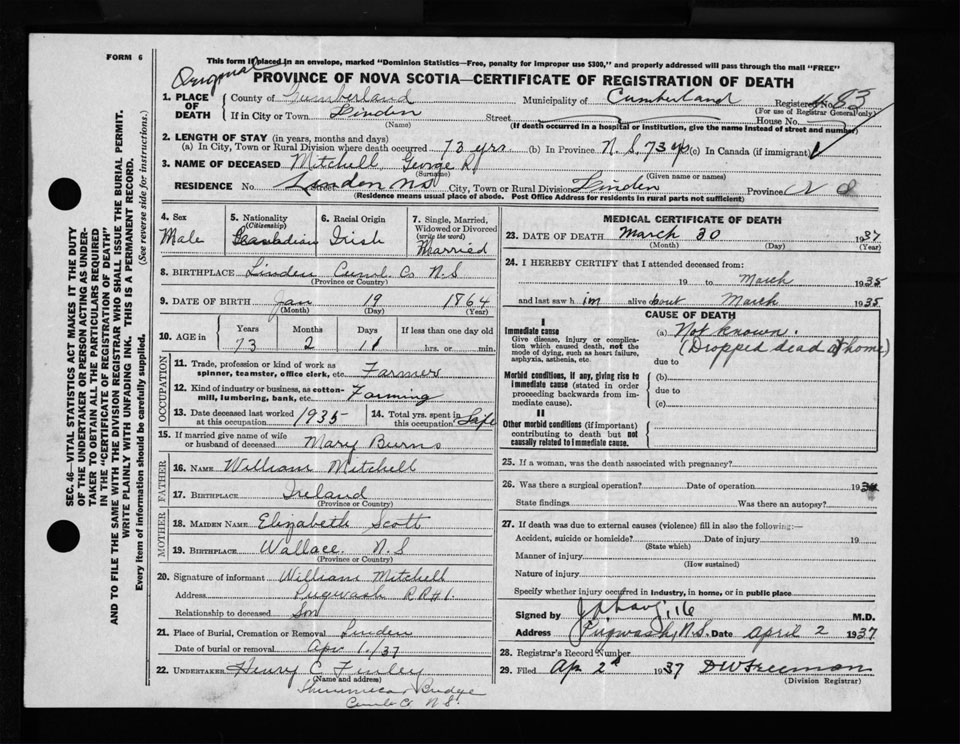 FORM 6
This form if placed in an envelope, marked "Dominion Statistics—Free, penalty for improper use $300," and properly addressed will pass through the mail "FREE"
Original
PROVINCE OF NOVA SCOTIA—CERTIFICATE OF REGISTRATION OF DEATH
1. PLACE OF DEATH
County of Cumberland Municipality of Cumberland Registered No. 83
(For use of Registrar General only)
If in City or Town Linden Street House No.
(Name) (If death occurred in a hospital or institution, give the name instead of street and number)
2. LENGTH OF STAY (in years, months and days)
(a) In City, Town or Rural Division where death occurred 73 yrs (b) In Province N.S. 73 yrs (c) In Canada (if immigrant)
3. NAME OF DECEASED Mitchell, George R.
(Surname) (Given name or names)
RESIDENCE No. Linden City, Town or Rural Division Linden Province N S
(Residence means usual place of abode. Post Office Address for residents in rural parts not sufficient)
4. Sex
Male
5. Nationality
(Citizenship)
Canadian
6. Racial Origin
Irish
7. Single, Married, Widowed or Divorced
(write the word)
Married
8. BIRTHPLACE Linden Cumb. Co N.S
(Province or Country)
9. DATE OF BIRTH Jan 19 1864
(Month) (Day) (Year)
10. AGE in Years Months Days If less than one day old
73 2 11 hrs. or min.
OCCUPATION
11. Trade, profession or kind of work as spinner, teamster, office clerk, etc. Farmer
12. Kind of industry or business, as cotton-mill, lumbering, bank, etc. Farming
13. Date deceased last worked at this occupation 1935
14. Total yrs. spent in this occupation Life
15. If married give name of wife or husband of deceased Mary Burns
FATHER
16. NAME William Mitchell
17. BIRTHPLACE Ireland
(Province or Country)
MOTHER
18. MAIDEN NAME Elizabeth Scott
19. BIRTHPLACE Wallace N.S
(Province or Country)
20. Signature of informant William Mitchell
Address Pugwash RR#1.
Relationship to deceased Son
21. Place of Burial, Cremation or Removal Linden
Date of burial or removal Apr 1/37
22. UNDERTAKER Henry C Finley
(Name and address)
Shinimecas Bridge
Cumb Co N.S.
MEDICAL CERTIFICATE OF DEATH
23. DATE OF DEATH March 30 1937
(Month) (Day) (Year)
24. I HEREBY CERTIFY that I attended deceased from:
19 to March 1935
and last saw him alive about March 1935
CAUSE OF DEATH
I
Immediate cause
Give disease, injury or complication which caused death, not the mode of dying, such as heart failure, asphyxia, asthenia, etc.
(a) Not known.
(Dropped dead at home)
due to
Morbid conditions, if any, giving rise to immediate cause (stated in order proceeding backwards from immediate cause).
(b)
due to
(c)
II
Other morbid conditions (if important) contributing to death but not causally related to immediate cause.
25. If a woman, was the death associated with pregnancy?
26. Was there a surgical operation? Date of operation 193
State findings Was there an autopsy?
27. If death was due to external causes (violence) fill in also the following:—
Accident, suicide or homicide? Date of injury 19
(State which)
Manner of injury
(How sustained)
Nature of injury
Specify whether injury occurred in Industry, in home, or in public place
Signed by M.D.
Address Pugwash, N.S. Date April 2 1937
28. Registrar's Record Number
29. Filed Apr 2 1937 D W Freeman
(Division Registrar)
SEC. 46—VITAL STATISTICS ACT MAKES IT THE DUTY
OF THE UNDERTAKER OR PERSON ACTING AS UNDER-
TAKER TO OBTAIN ALL THE PARTICULARS REQUIRED
IN THE "CERTIFICATE OF REGISTRATION OF DEATH"
AND TO FILE THE SAME WITH THE DIVISION REGISTRAR WHO SHALL ISSUE THE BURIAL PERMIT.
WRITE PLAINLY WITH UNFADING INK. THIS IS A PERMANENT RECORD.
Every item of information should be carefully supplied. (See reverse side for instructions.)